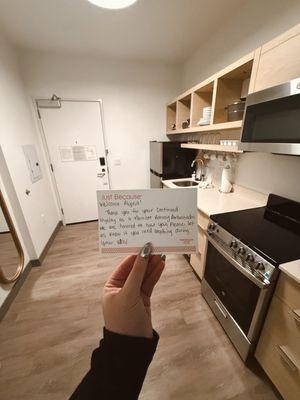 Just Because
Welcome August!
Thank you for your Continued
loyalty as a Marriott Bonvoy Ambassador.
We are honored to have you! Please let
us know if you need anything during
your stay!